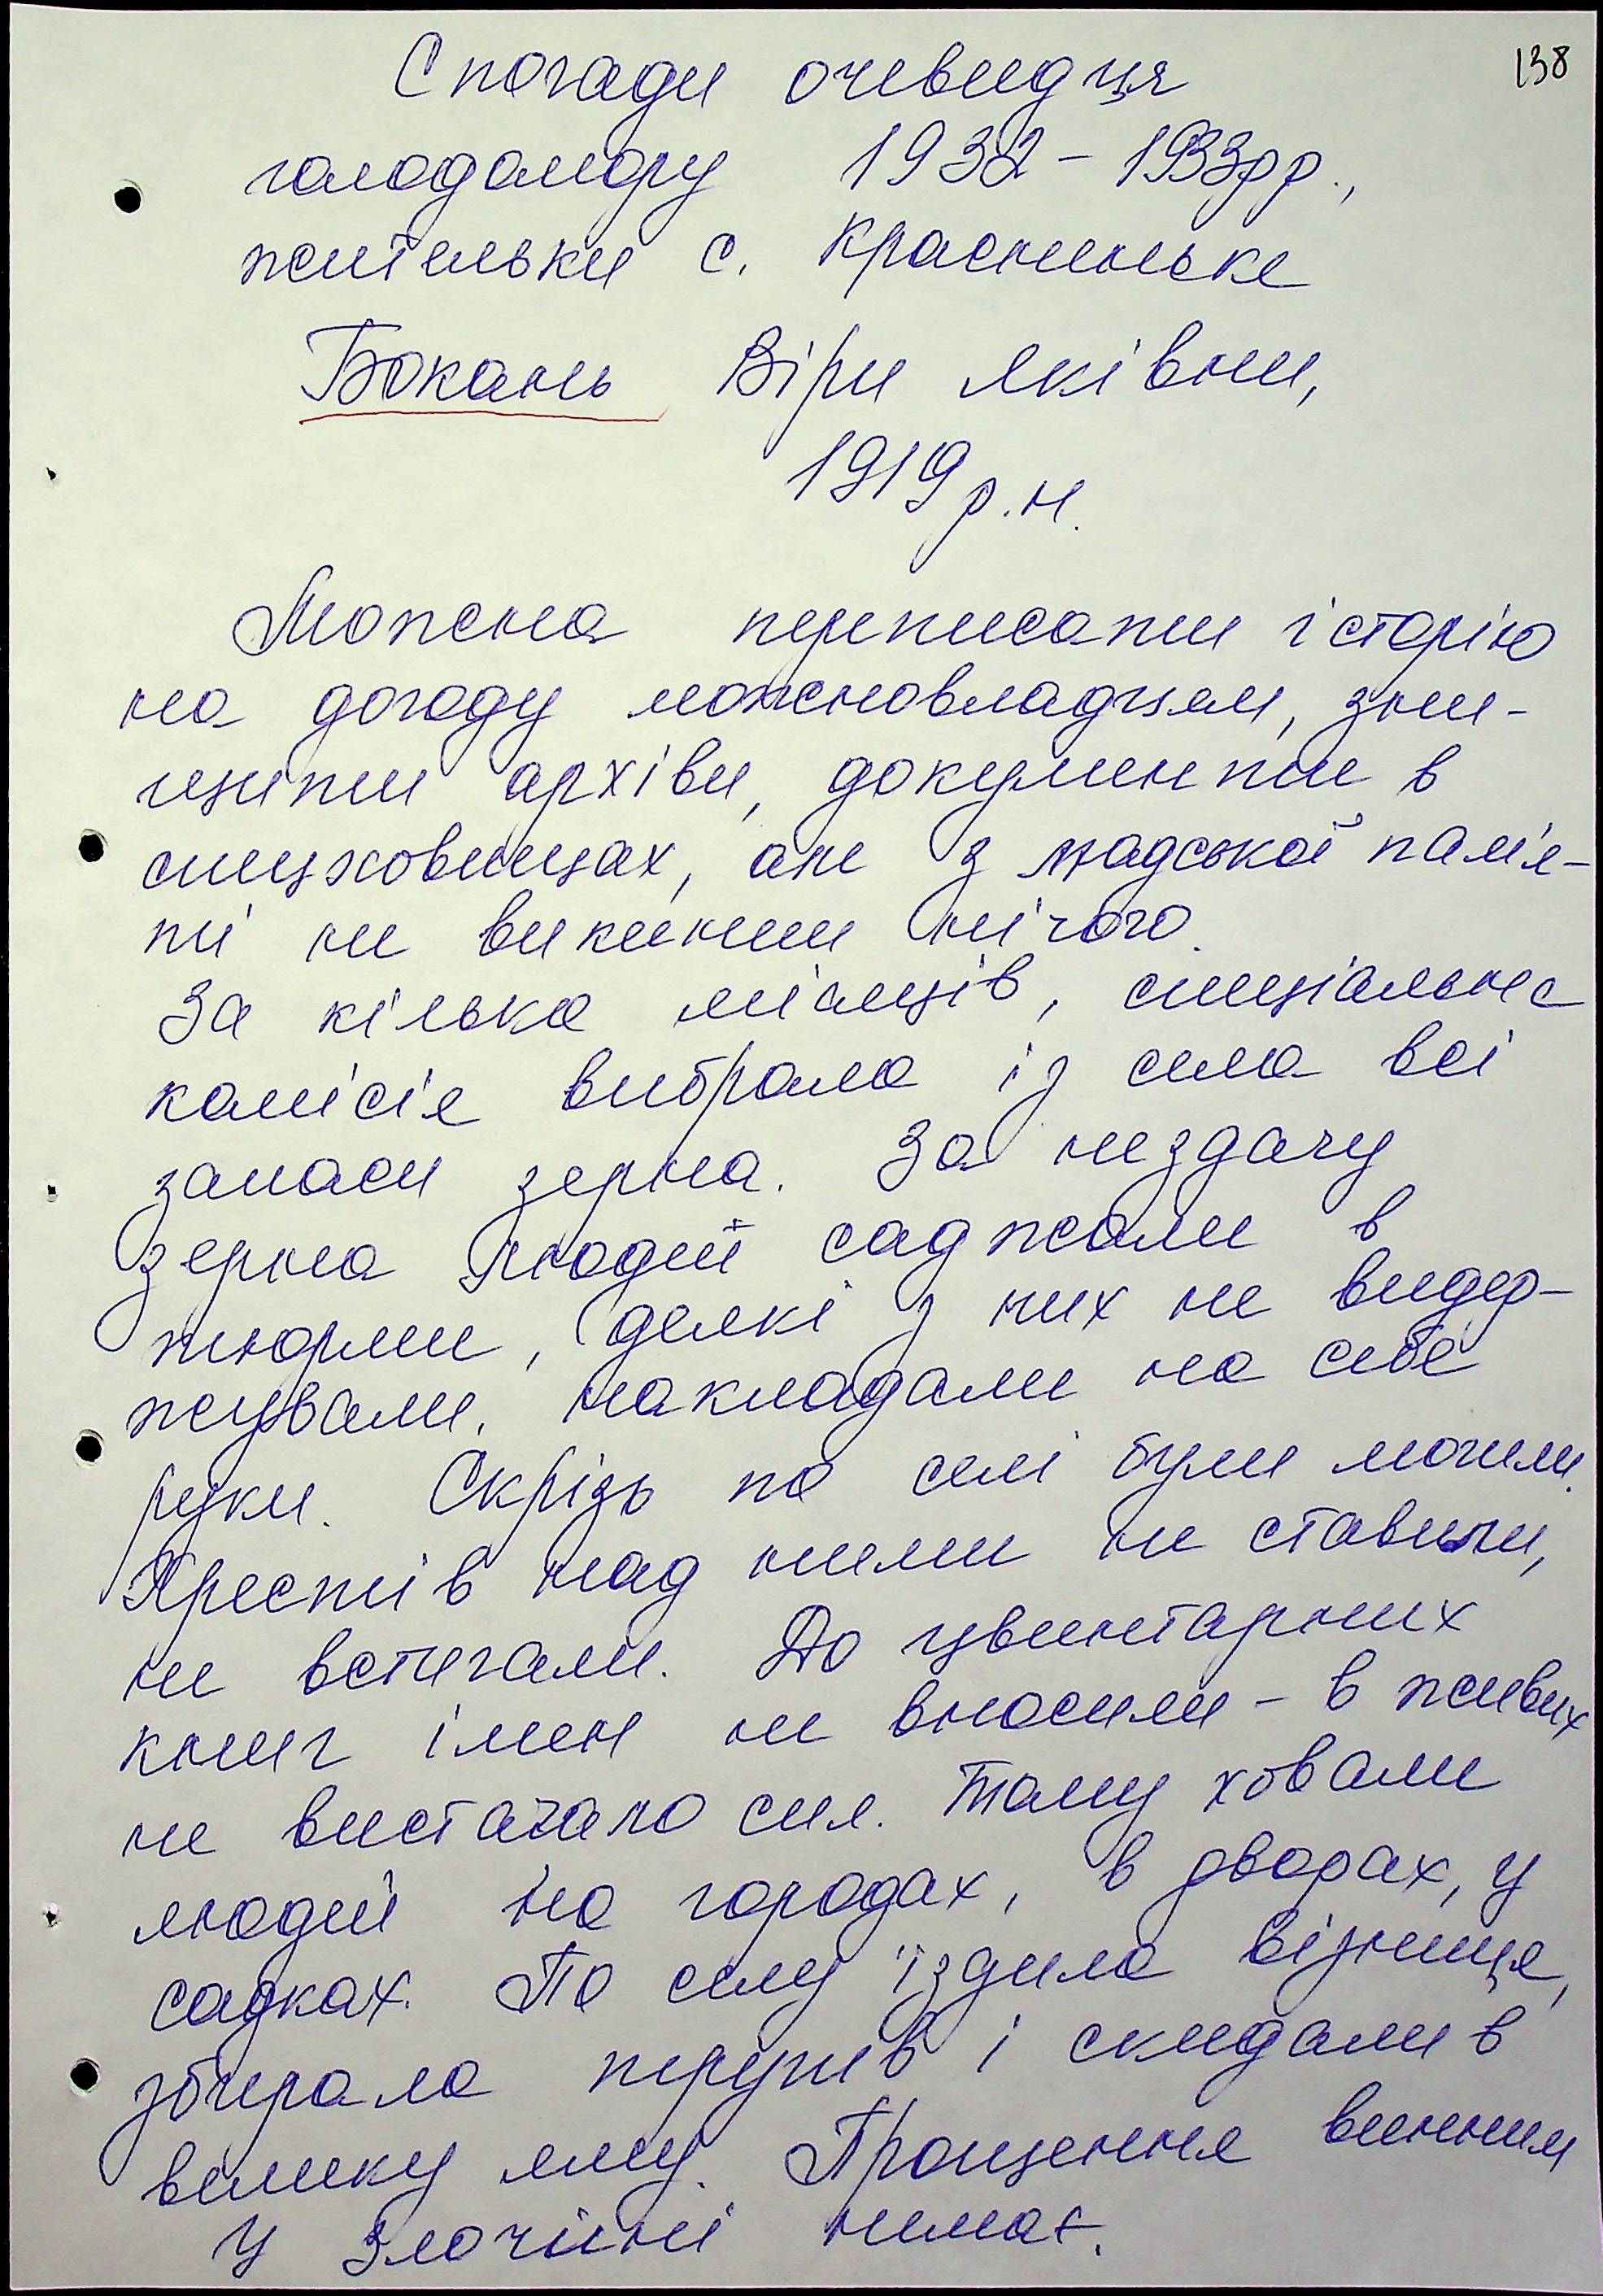 138
Спогади очевидця
голодомору 1932-1933рр.,
жительки с. Красненьке
Бокань Віри Яківни,
1919 р.н.
Можна переписати історію
на догоду можновладцям, зни-
щити архіви, документи в
спецховищах, але з людської пам'я-
ті не викинеш нічого.
За кілька місяців, спеціальна
комісія вибрала із села всі
запаси зерна. За нездачу
зерна людей саджали в
тюрми, деякі з них не видер-
жували, накладали на себе
руки. Скрізь по селі були могили.
Хрестів над ними не ставили,
не встигали. До цвинтарних
книг імен не вносили - в живих
не вистачало сил. Тому ховали
людей на городах, в дворах, у
садках. По селу їздила візниця,
збирала трупів і скидали в
велику яму. Прощення винним
у злочині немає.